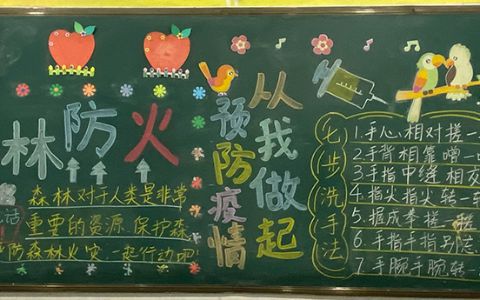 林防火
森林对于人类是非常
话
重要的资源.保护森
防森林火灾,一起行动吧
预防疫情
从我做起
七步洗手法
1.手心相对搓一
2.手背相靠噌一
3.手指中缝相交
4.指尖指尖转一
5.握成拳搓一
6.手指手指
7.手腕手腕转一